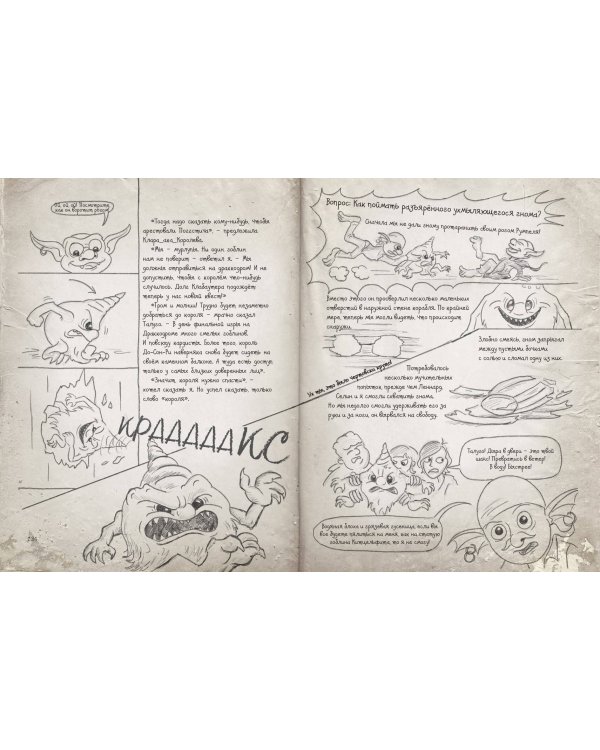 Ой, ой, ой! Посмотрите,
как он воротит рогом!
«Тогда надо сказать кому-нибудь, чтобы
арестовали Поггстича», – предложила
Клара_ака_Королева.
«Мы – мурлупы. Ни один гоблин
нам не поверит – ответил я. – Мы
должны отправиться на дракодром! И не
допустить, чтобы с королём что-нибудь
случилось. Дола Клабаутера подождёт:
теперь у нас новый квест!»
«Гром и молнии! Трудно будет незаметно
добраться до короля – мрачно сказал
Талуго. – В день финальной игры на
Дракодроме много смелых гоблинов.
И повсюду гвардисты. Более того, король
До-Сон-Ги наверняка снова будет сидеть на
своём каменном балконе. А туда есть доступ
только у самых близких доверенных лиц».
«Значит, короля нужно спасти», –
хотел сказать я. Но успел сказать только
слово «короля».
КРАААААКС
Вопрос: Как поймать разъярённого ухмыляющегося гнома?
Сначала мы не дали гному протаранить своим рогом Румпеля!
Вместо этого он пробуравил несколько маленьких
отверстий в наружной стене корабля. По крайней
мере, теперь мы могли видеть, что происходит
снаружи.
Злобно смеясь, гном запрыгал
между пустыми бочками
с солью и сломал одну из них.
Но тем, это было чертовски круто!
Потребовалось
несколько мучительных
попыток, прежде чем Леннард,
Селин и я смогли схватить гнома.
Но мы недолго смогли удерживать его за
руки и за ноги, он вырвался на свободу.
Талуго! Дыра в двери – это твой
шанс! Превратись в ветер!
В воду! Быстрее!
если вы
все будете пялиться на меня, как на статую
гоблина то я не смогу!